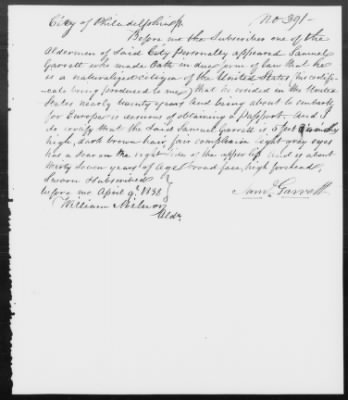 City of Philadelphia ss No. 391-
Before me the Subscriber one of the
Aldermen of Said City Personally appeared Samuel
Garrett who made Oath in due form of law that he
is a naturalized citizen of the United States (his certifi-
cate being produced to me) that he resided in the United
States nearly twenty years and being about to embark
for Europe is desirous of obtaining a passport. And I
do certify that the Said Samuel Garrett is 5 feet
high, dark brown hair, fair complexion light gray eyes
has a scar on the right side of the upper lip and is about
thirty Seven years of Age, broad face, high forehead,
Sworn & subscribed
before me April 9th 1838 Saml. Garrett
William Milnor
Aldn